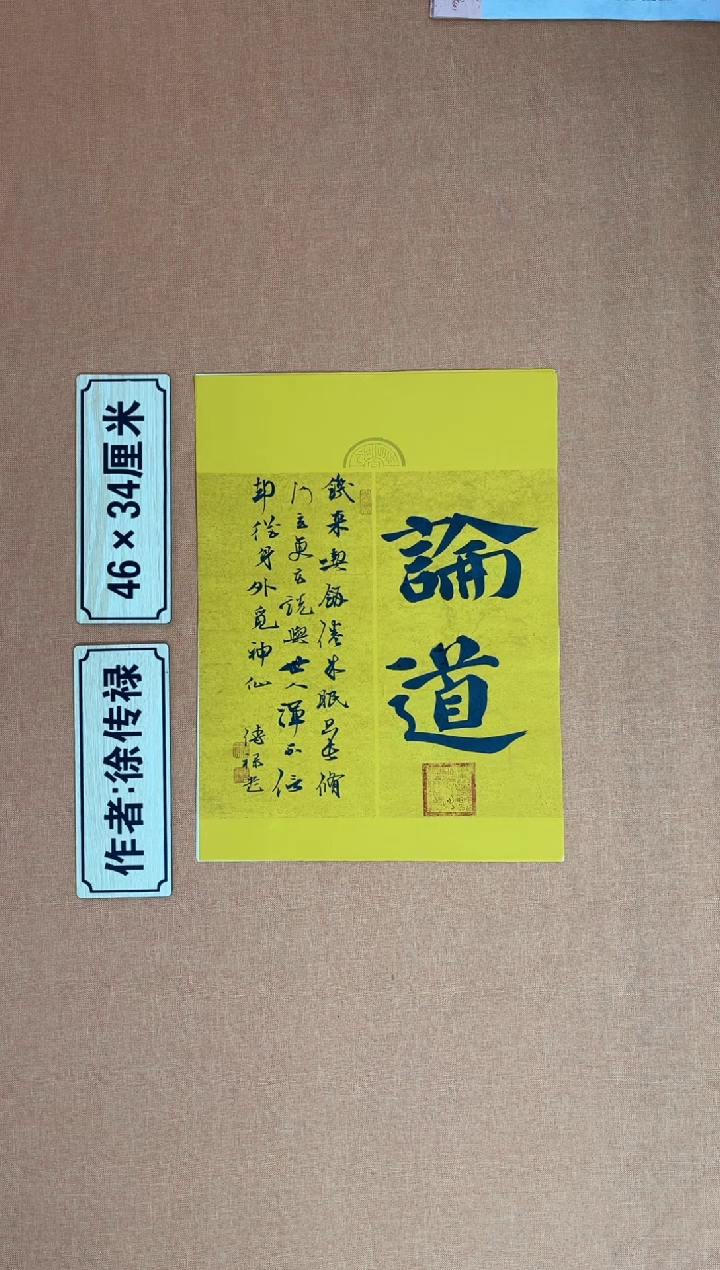 論道
饑来喫飯倦来眠只此修
行玄更玄說與世人渾不信
却從身外覓神仙
傳祿書
46×34厘米
作者:徐传禄